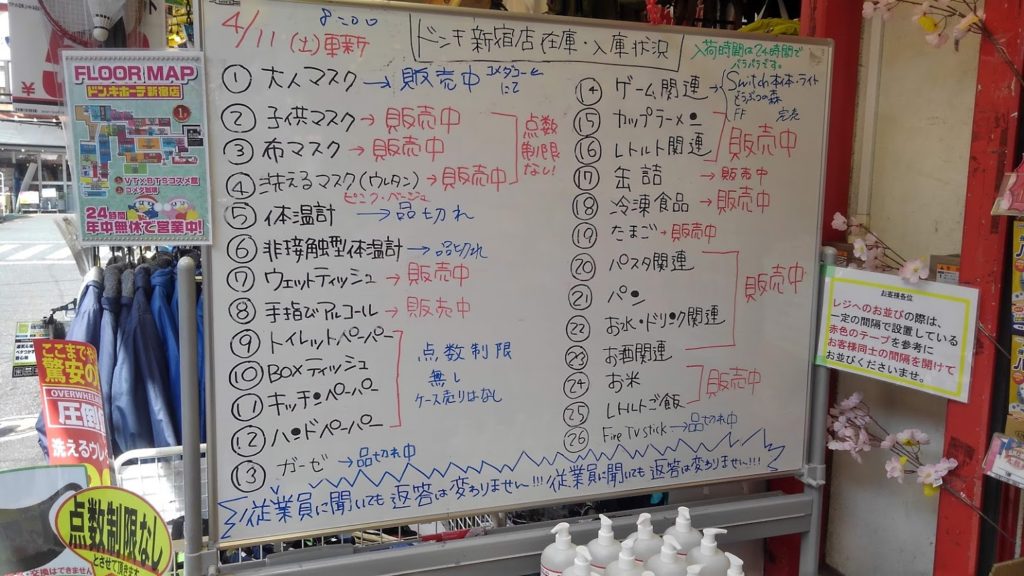 4/11(土)更新
8:00
ドンキ新宿店在庫・入庫状況
入荷時間は24時間で
バラバラです。
① 大人マスク→販売中 コメダコーヒーにて
② 子供マスク→販売中
③ 布マスク→販売中
④ 洗えるマスク(ウレタン)→販売中
ピンク・ベージュ
点数
制限
なし!
⑤ 体温計→品切れ
⑥ 非接触型体温計→品切れ
⑦ ウェットティッシュ→販売中
⑧ 手指びアルコール→販売中
⑨ トイレットペーパー
⑩ BOXティッシュ
⑪ キッチンペーパー
⑫ ハンドペーパー
点数制限
無し
ケース売りはなし
⑬ ガーゼ→品切れ中
⑭ ゲーム関連→
Switch本体・ライト
どうぶつの森
FF 完売
⑮ カップラーメン
⑯ レトルト関連
販売中
⑰ 缶詰→販売中
⑱ 冷凍食品→販売中
⑲ たまご→販売中
⑳ パスタ関連
㉑ パン
㉒ お水・ドリンク関連
㉓ お酒関連
販売中
㉔ お米
㉕ レトルトご飯
販売中
㉖ Fire TV stick→品切れ中
従業員に聞いても返答は変わりません!!!従業員に聞いても返答は変わりません!!!
FLOOR MAP
ドンキホーテ新宿店
24時間
年中無休で営業中!
お客様各位
レジへのお並びの際は、
一定の間隔で設置している
赤色のテープを参考に
お客様同士の間隔を開けて
お並びくださいませ。
ここまで
驚安の
OVERWHEL
圧倒
洗えるウレ
点数制限なし
とさせて頂きます
交換はできません